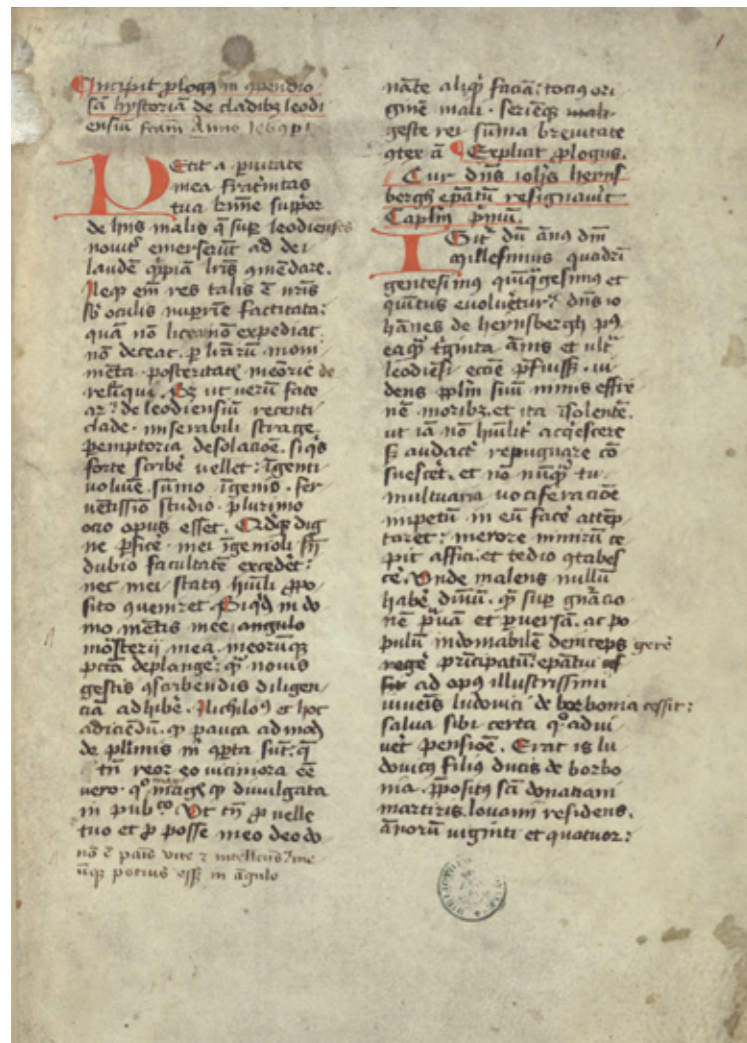 Incipit plogus in 9pendio
sā hystoriā de cladibz leodi
ensiū scām Anno 1469 pi
Petit a pvitate
mea fratnitas
tua
de hiis malis q̄ sup leodienses
novit emerserūt ad dei
laudē qͥpiā lrīs 9mēdare.
Neqz em̄ res talis ē urīs
sb oculis nuprīe factitata:
quā nō liceat nō expediat
nō deceat. p lrārū moni
mēta posteritatē meōrie de
relīqui. Sz ut uerū fate
ar: de leodiensiū recenti
clade. miserabili strage
pemptoria desolacioē. siqͥs
forte scribe uellet: īgenti
uolume. sūmo īgenio. fer
uētissio studio. plurimo
ocio opus esset. Adqz dig
ne pfice. mei īgenioli sn̄
dubio facultatē excedet:
nec mei status hūili ppo
sito 9uenret. Siqͥdē in do
mo mētis mee angulo
mōsterii mea meorūqz
pctā deplange: qͣ nouis
gestis 9scribendis diligen
ciā adhibe. Nichilo9 et hoc
adiciēdū. qp pauca admodū
de plimis m̄ 9pta sūt: q̄
tn̄ reor eo uiciniora eē
vero. qͦ magis qp divulgata
in pubco. Ut tn̄ p velle
tuo et p posse meo deo do
nō ē pais vite 2 intellcus: me
ūqz potius esse in āgulo
nāte aliqͥ faciā: tocius ori
ginē mali. seriēqz mali
geste rei sūma breuitate
9tex ā Explicat plogus.
Cur dn̄s iohīs heyns
bergh epātū resignauit
Caplm pmū.
Igit dū ān9 dn̄i
millesimus quadrī
gentesimus quīqgesimus et
qūitus evolueretur: dn̄s io
hānes de heynsbergh p9
eaqͣ tͥginta ānis et ultͣ
leodiēsi eccīe pfuisset. ui
dens pplm suū nimis effre
nē moribz. et ita īsolentē.
ut iā nō hūilit acqͥescere
sz audact repugnare cō
suescet. et nō nūqͣ tu
multuaria uociferacioē
impetū in eū face attēp
taret: merore mirū ce
pit affici. et tedio 9tabes
ce. Unde malens nullū
habe dn̄iū. qͣ sup gnācio
nē pͣuā et pversā. ac po
pulū indomabilē deinceps gere
rege prīcipatū: epātū
ad opus illustrissimi
iuveīs ludovici de borbonia cessit:
salua sibi certa qͦadvi
vet pensioē. Erat is lu
dovicus filius ducis de borbo
nia. ppositus scī donatiani
martiris. lovanii residens.
ānorū uiginti et quatuor: